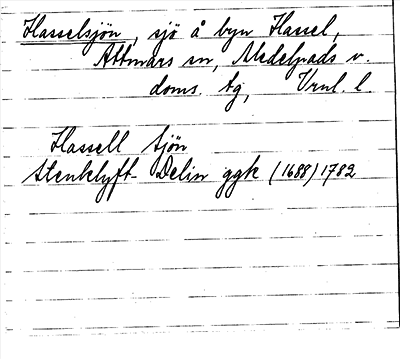 Hasselsjön, sjö å byn Hassel,
Attmars sn, Medelpads v.
doms. tg, Vrnl. l.
Hassell Sjön
Stenklyft- Delin ggk (1688) 1782